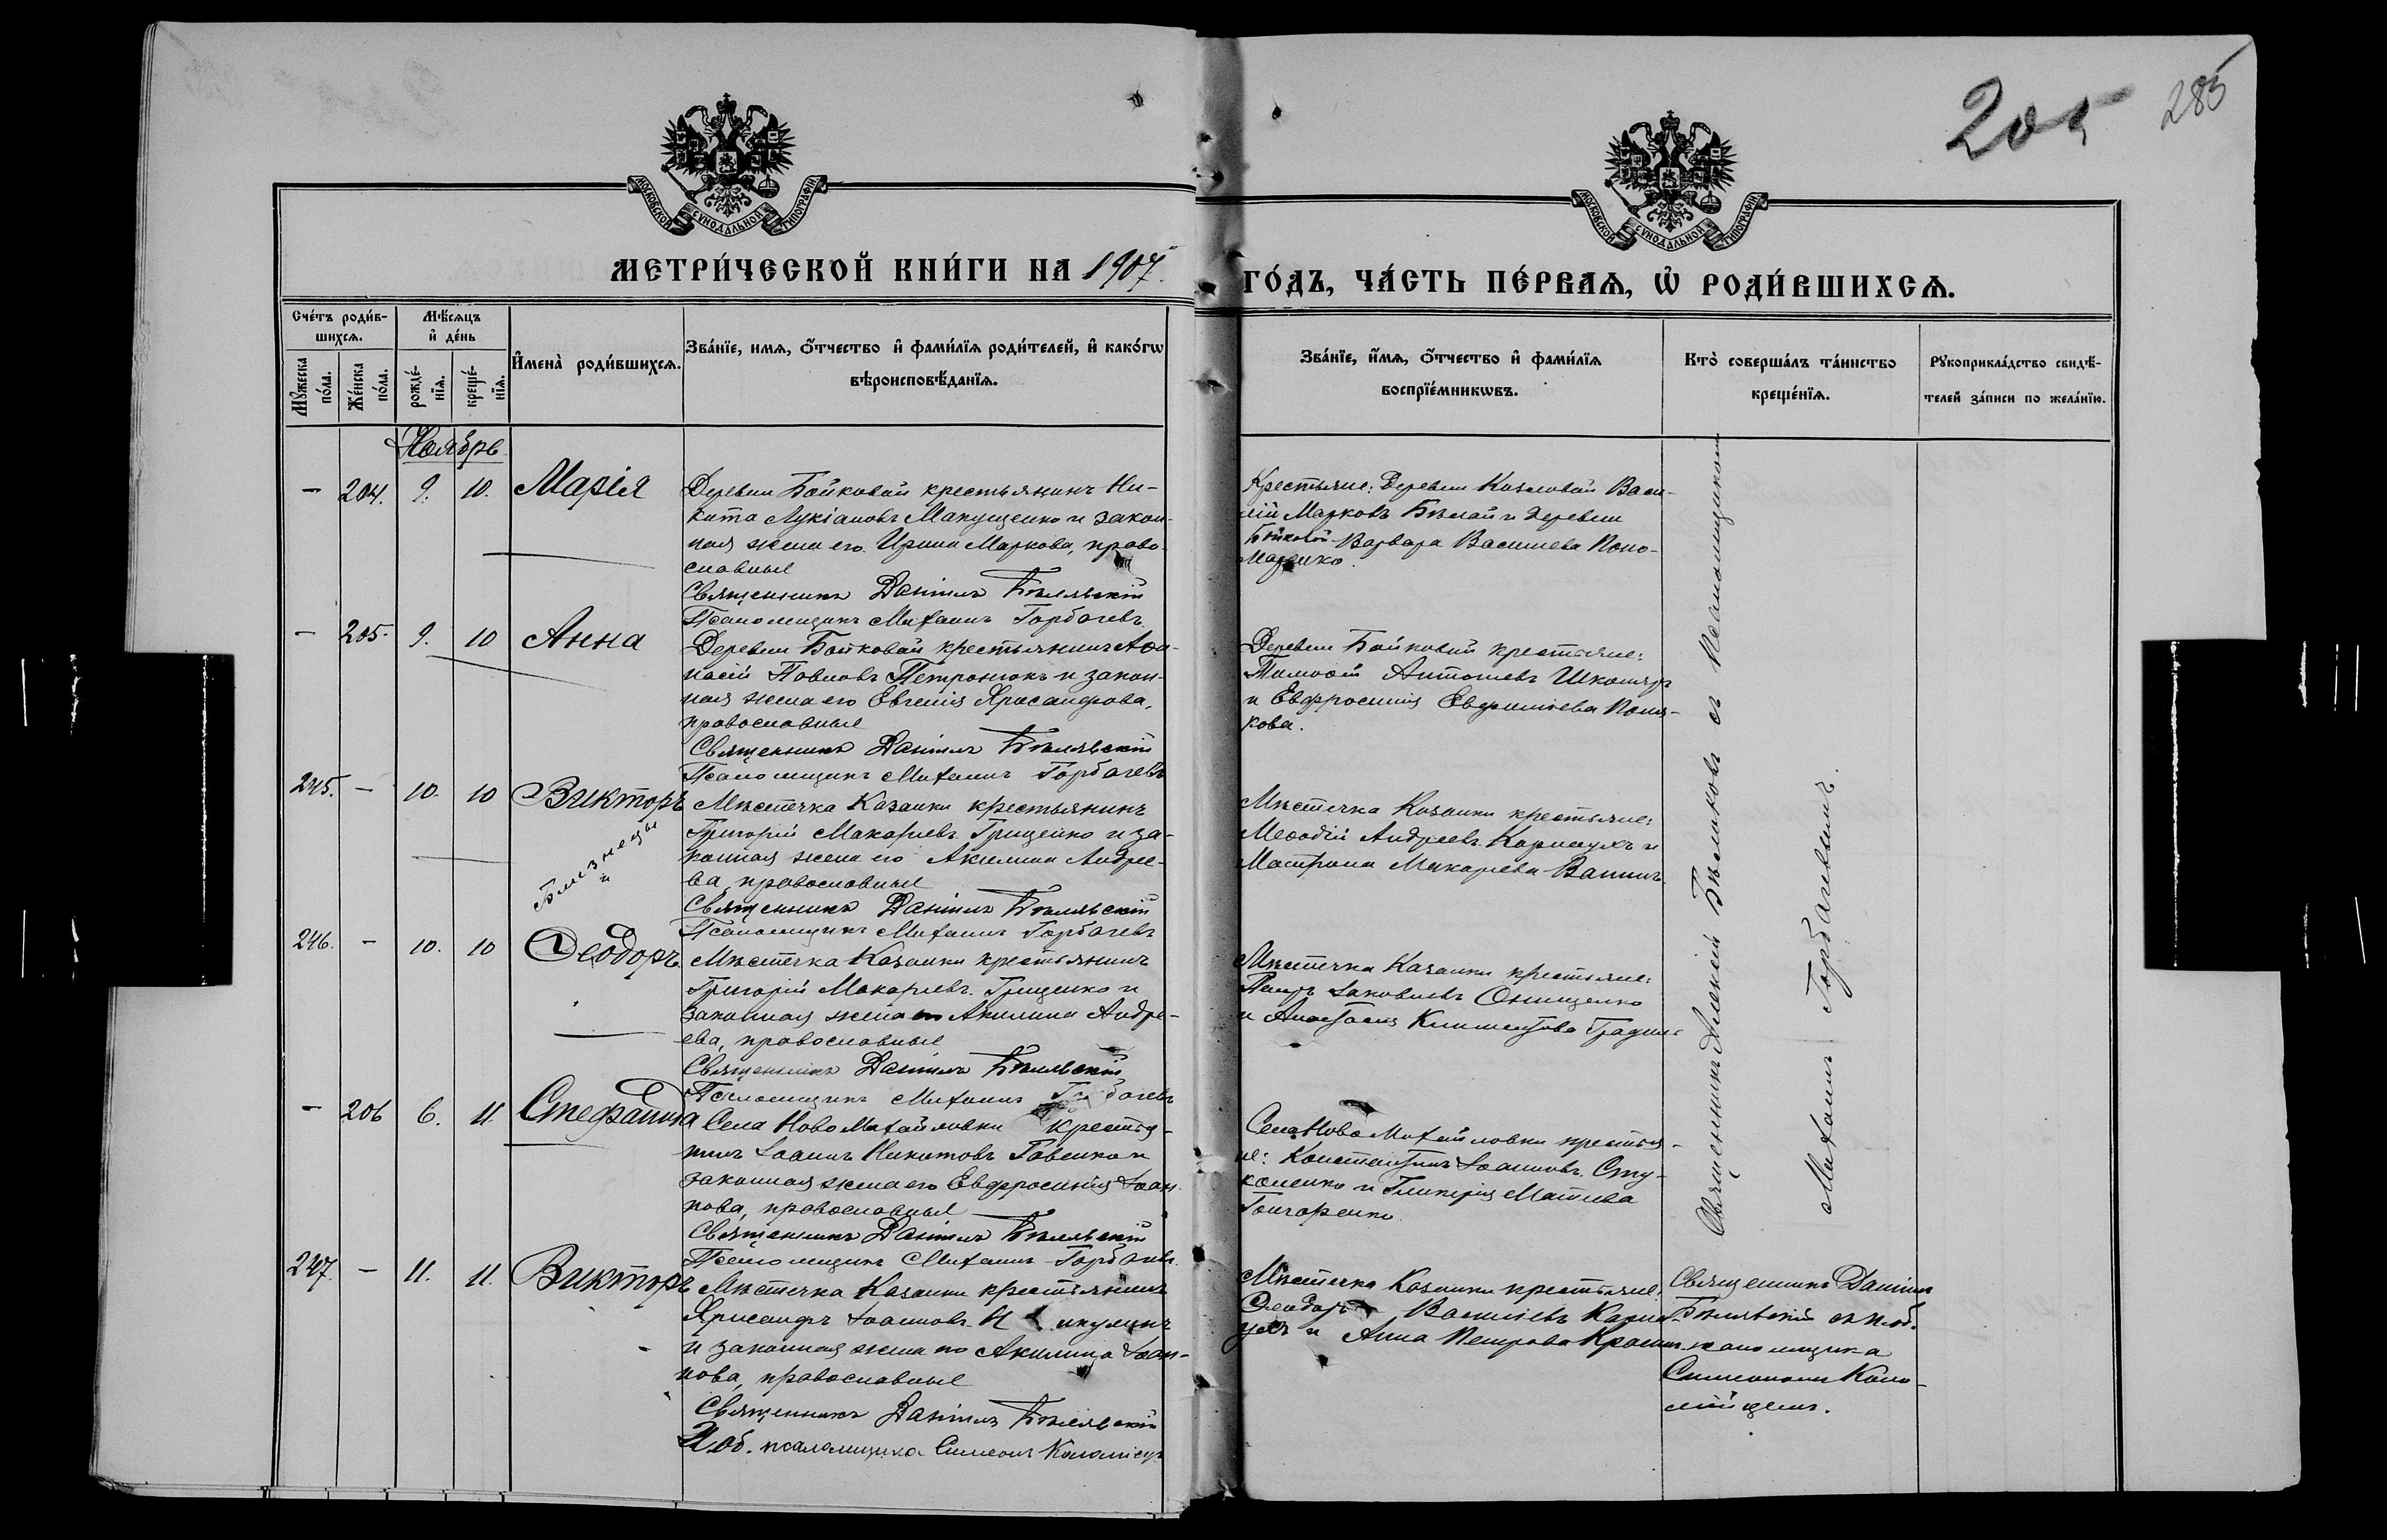 205 285
МОСКОВСКОЙ СѴНОДАЛЬНОЙ ТИПОГРАФІИ
МОСКОВСКОЙ СѴНОДАЛЬНОЙ ТИПОГРАФІИ
МЕТРИ́ЧЕСКОЙ КНИ́ГИ НА 1907. ГО́ДЪ, ЧА́СТЬ ПЕ́РВАѦ, Ѡ҆ РОДИ́ВШИХСѦ.
Сче́тъ роди́в-
шихсѧ.
Мꙋжеска по́ла.
Же́нска по́ла.
Мѣ́сѧцъ
и҆ де́нь
рожде́-
нїѧ.
креще́-
нїѧ.
И҆мена̀ роди́вшихсѧ.
Зва́нїе, имѧ, ѻ҆́тчество и҆ фами́лїѧ роди́телей, и҆ како́гѡ
вѣроисповѣ́данїѧ.
Зва́нїе, и҆́мѧ, ѻ҆́тчество и҆ фами́лїѧ
воспрїе́мникѡвъ.
Кто̀ соверша́лъ та́инство
креще́нїѧ.
Рꙋкоприкла́дство свидѣ́-
телей за́писи по жела́нїю.
Ноябрь
– 204. 9. 10. Марія
Деревни Бойковой крестьянинъ Ни-
кита Лукіановъ Макущенко и закон-
ная жена его Ирина Маркова, право-
славные
Священникъ Даніилъ Бѣлявскій
Псаломщикъ Михаилъ Горбачевъ
Крестьяне: Деревни Козловой Васи-
лій Марковъ Бѣлай и деревни
Бойковой Варвара Васильева Поно-
маренко.
– 205. 9. 10 Анна
Деревни Бойковой крестьянинъ Аѳа-
насій Павловъ Петронюкъ и закон-
ная жена его Евгенія Александрова,
православные
Священникъ Даніилъ Бѣлявскій
Псаломщикъ Михаилъ Горбачевъ
Деревни Бойковой крестьяне:
Тимоѳей Антоньевъ Школяръ
и Евфросинія Поля-
кова.
245. – 10. 10 Викторъ
Близнецы
и
Мѣстечка Казанки крестьянинъ
Григорій Макаріевъ Грищенко и за-
конная жена его Акилина Андрее-
ва, православные
Священникъ Даніилъ Бѣлявскій
Псаломщикъ Михаилъ Горбачевъ
Мѣстечка Казанки крестьяне:
Меѳодій Андреевъ Карнаухъ и
Матрона Макарьева
246. – 10. 10 Ѳеодоръ
Мѣстечка Казанки крестьянинъ
Григорій Макаріевъ Грищенко и
законная жена его Акилина Андре-
ева, православные
Священникъ Даніилъ Бѣлявскій
Псаломщикъ Михаилъ Горбачевъ
Мѣстечка Казанки крестьяне:
Петръ Іаковлевъ Онищенко
и Анастасія Климентова
– 206 6. 11. Стефанида
Села Ново Михайловки крестья-
нинъ Іоаннъ Никитовъ Говенко и
законная жена его Евфросинія Іоан-
нова, православные
Священникъ Даніилъ Бѣлявскій
Псаломщикъ Михаилъ Горбачевъ
Села Ново Михайловки крестья-
не: Константинъ Іоанновъ Сту-
коленко и Гликерія
Гончаренко.
247. – 11. 11. Викторъ
Мѣстечка Казанки крестьянинъ
Александръ Іоанновъ Никулинъ
и законная жена его Акилина Іоан-
нова, православные
Священникъ Даніилъ Бѣлявскій
И. об. псаломщика Симеонъ Коломіецъ
Мѣстечка Казанки крестьяне:
Ѳеодоръ Васильевъ Карна-
ухъ и Анна Петрова
Священникъ Даніилъ
Бѣлявскій съ и. об.
псаломщика
Симеономъ Коло-
мійцемъ.
Священникъ Алексій Бѣликовъ съ псаломщикомъ
Михаиломъ Горбачевымъ.